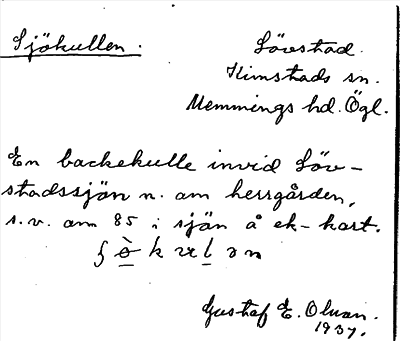 Sjökullen.
Lövstad.
Kimstads sn.
Memmings hd. Ögl.
En backekulle invid Löv-
stadssjön n. om herrgården,
s.v. om 85 i sjön å ek-kart.
Gustaf E. Olsson.
1937.